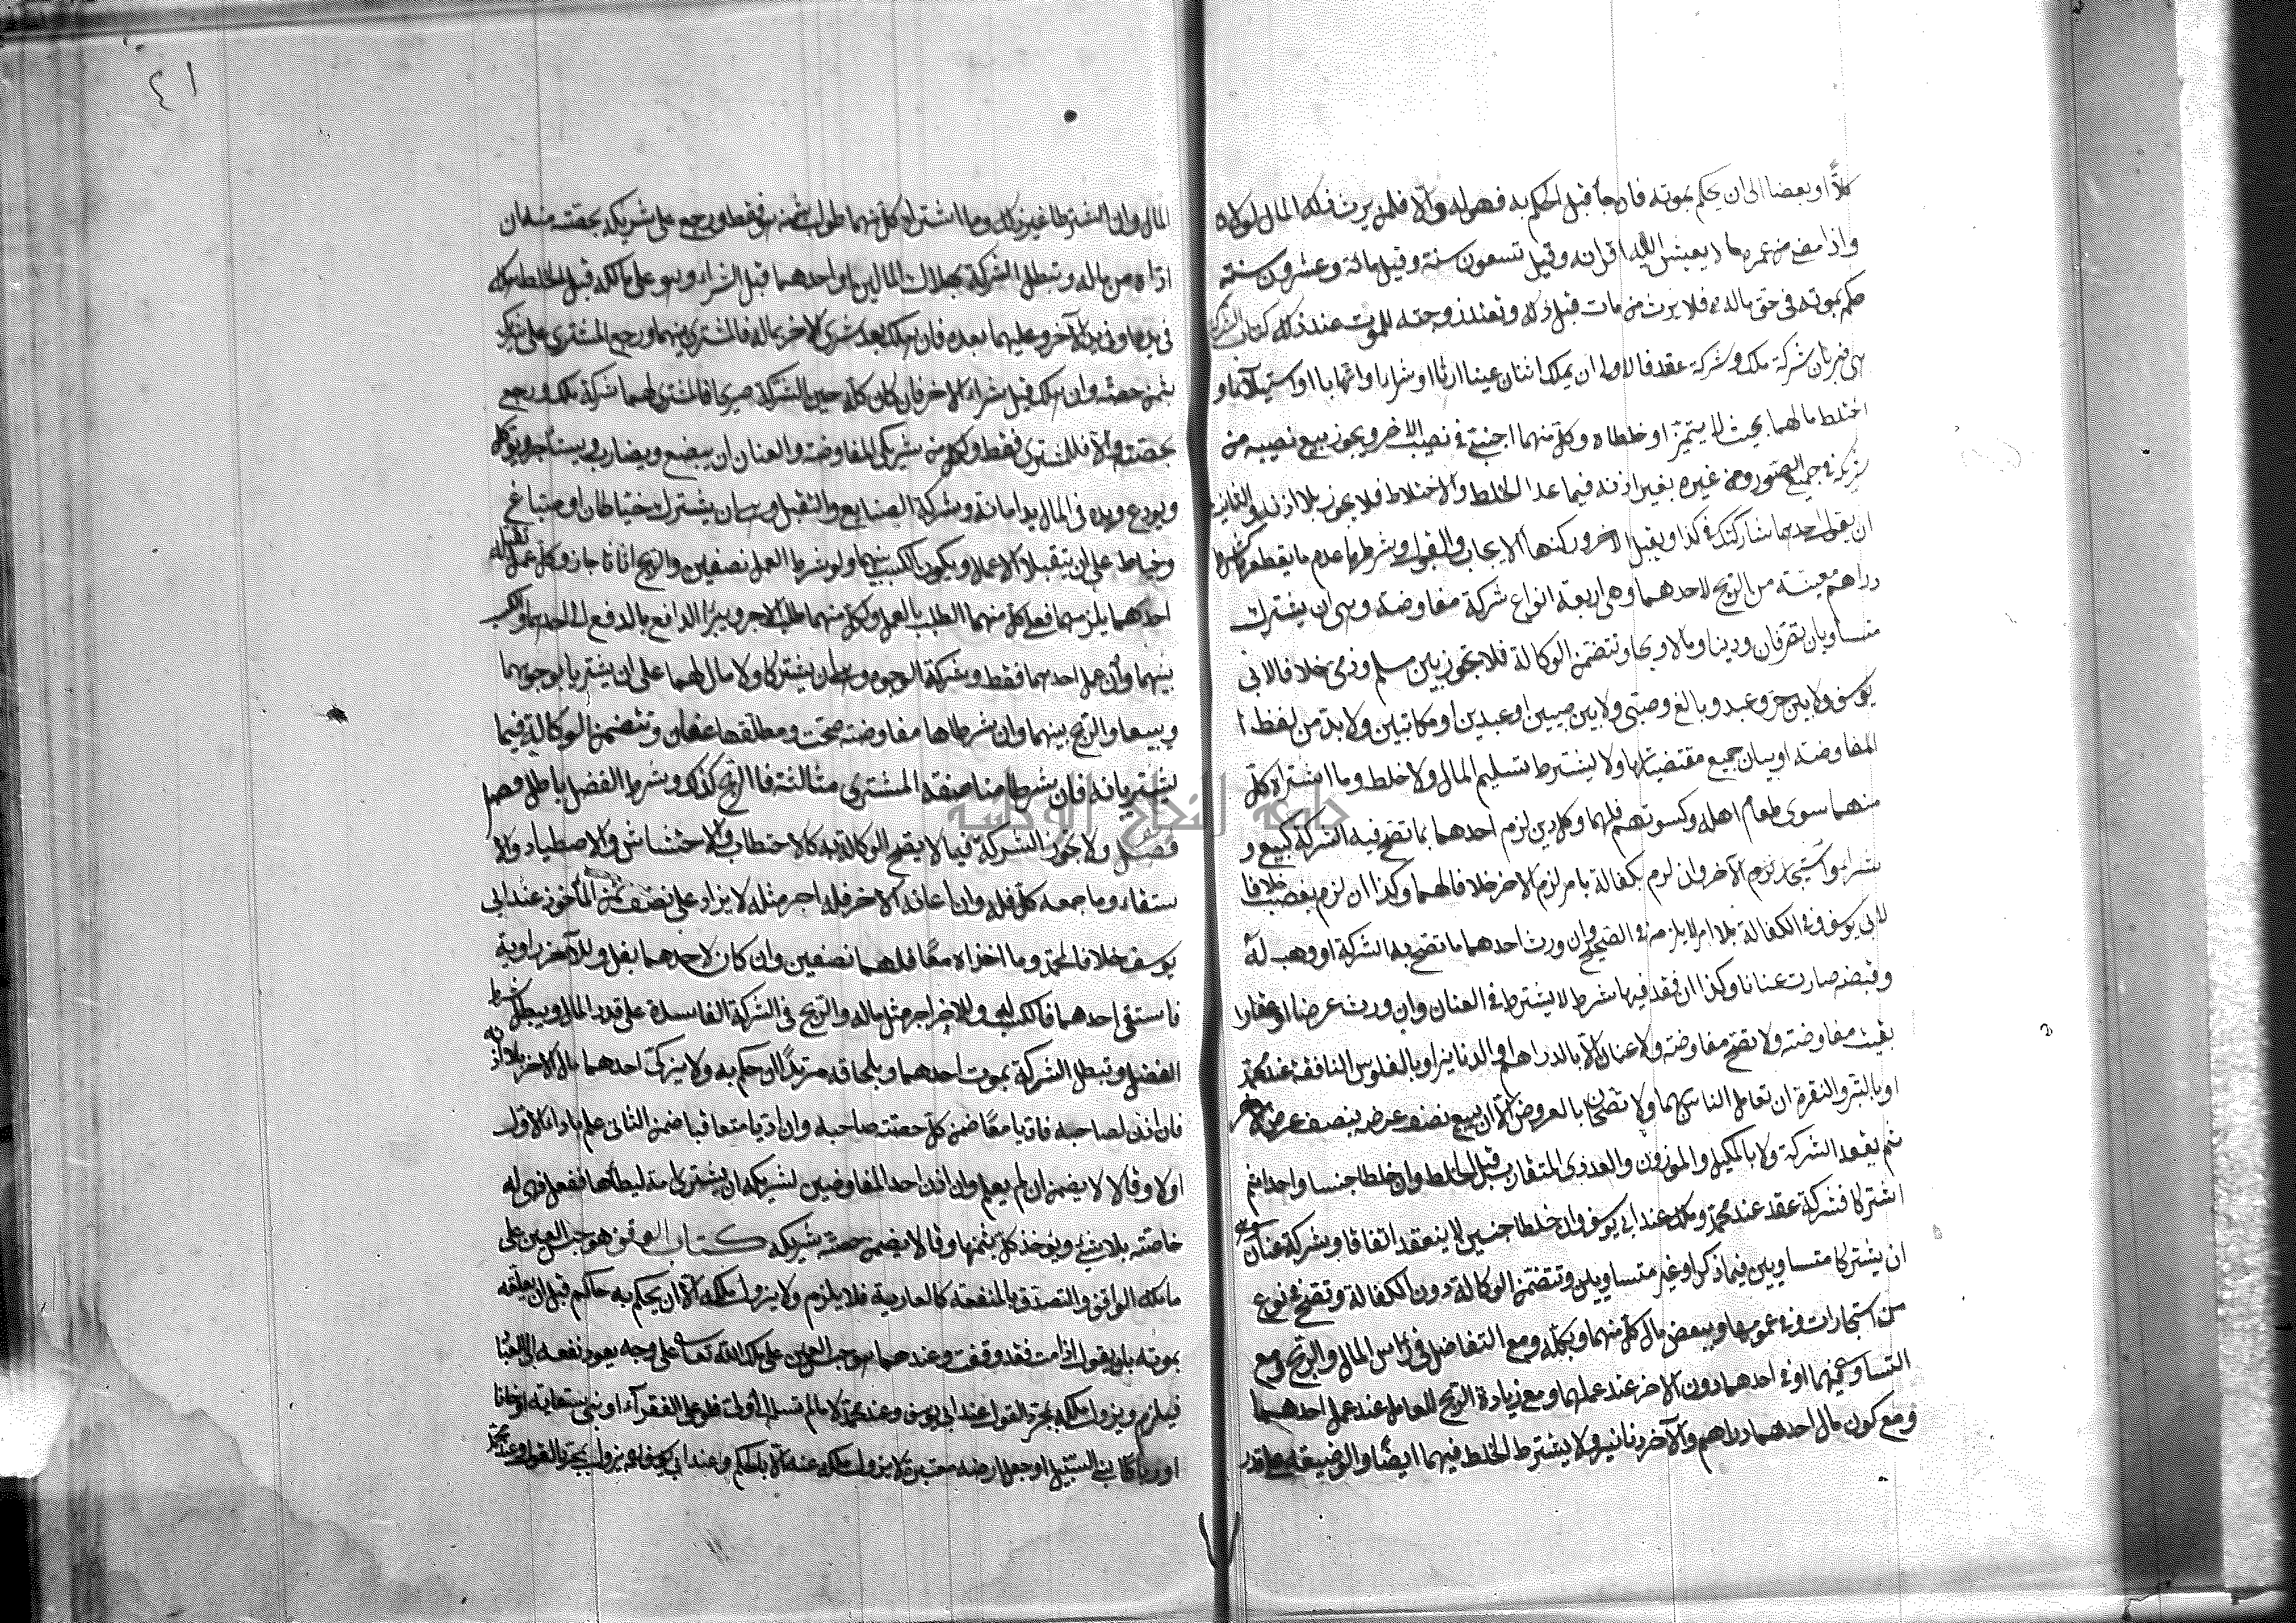 كلا او بعضا الى ان يحكم بموته فان جاء قبل الحكم به فهو له والا فلمن يرث ذلك المال لولاه
واذا مضى من عمره ما لا يعيش اليه اقرانه وقيل تسعون سنة وقيل مائة وعشرون سنة
حكم بموته فى حق ماله فلا يرث من مات قبل ذلك وتعتد زوجته للموت عند ذلك كتاب الشركة
هى ضربان شركة ملك وشركة عقد فالاولى ان يملك اثنان عينا ارثا او شراء او اتهابا او استيلاء او
اختلط مالهما بحيث لا يتميز او خلطاه وكل منهما اجنبى فى نصيب الاخر ويجوز بيع نصيبه من
شريكه فى جميع الصور ومن غيره بغير اذنه فيما عدا الخلط والاختلاط فلا يجوز بلا اذنه والثانية
ان يقول احدهما شاركتك فى كذا ويقبل الاخر وركنها الايجاب والقبول وشرطها عدم ما يقطعها كشرط
دراهم معينة من الربح لاحدهما وهى اربعة انواع شركة مفاوضة وهى ان يشترك
متساويان تصرفا ودينا ومالا وربحا وتتضمن الوكالة فلا تجوز بين مسلم وذمى خلافا لابى
يوسف ولا بين حر وعبد وبالغ وصبى ولا بين صبيين او عبدين او مكاتبين ولا بد من لفظ ا
المفاوضة او بيان جميع مقتضياتها ولا يشترط تسليم المال ولا خلط وما اشتراه كل
منهما سوى طعام اهله وكسوتهم فلهما وكل دين لزم احدهما بما تصح فيه الشركة كبيع و
شراء واستيجار لزم الآخر وان لزم بكفالة بامر لزم الاخر خلافا لهما وكذا ان لزم بغصب خلافا
لابى يوسف وفى الكفالة بلا امر لا يلزمه فى الصحيح وان ورث احدهما ما تصح به الشركة او وهب له
وقبضه صارت عنانا وكذا ان فقد فيها شرط لا يشترط فى العنان وان ورث عرضا او عقارا
بقيت مفاوضة ولا تصح مفاوضة ولا عنان الا بالدراهم والدنانير او بالفلوس النافقة عند محمد
او بالتبر والنقرة ان تعامل الناس بهما ولا تصحان بالعروض الا ان يبيع نصف عرضه بنصف عرض الاخر
ثم يعقد الشركة ولا بالمكيل والموزون والعددى المتقارب قبل الخلط وان خلطا جنسا واحدا ثم
اشتركا فشركة عقد عند محمد وملك عند ابى يوسف وان خلطا جنسين لا ينعقد اتفاقا وشركة عنان وهى
ان يشتركا متساويين فيما ذكر او غير متساويين وتتضمن الوكالة دون الكفالة وتصح فى نوع
من التجارات وفى عمومها وببعض مال كل منهما وبكله ومع التفاضل فى رأس المال والربح ومع
التساوى فيهما او فى احدهما دون الاخر عند عملهما ومع زيادة الربح للعامل عند عمل احدهما
ومع كون مال احدهما دراهم والآخر دنانير ولا يشترط الخلط فيهما ايضا والوضيعة على قدر
٤١
المال وان اشترطا غير ذلك وما اشتراه كل منهما طولب بثمنه هو فقط ويرجع على شريكه بحصته منه ان
اداه من ماله وتبطل الشركة بهلاك المالين او احدهما قبل الشراء وهو على مالكه قبل الخلط هلك
فى يده او فى يد الآخر وعليهما بعده فان هلك بعد شرى الاخر بماله فالمشترى بينهما ورجع المشترى على شريكه
بثمن حصته وان هلك قبل شراء الاخر فان كان وكله حين الشركة صريحا فالمشترى لهما شركة ملك ورجع
بحصته والا فللمشترى فقط ولكل من شريكى المفاوضة والعنان ان يبضع ويضارب ويستأجر ويوكل
ويودع ويده فى المال يد امانة وشركة الصنايع والتقبل وهى ان يشترك خياطان او صباغ
وخياط على ان يتقبلا الاعمال ويكون الكسب بينهما ولو شرط العمل نصفين والربح اثلاثا جاز وكل عمل تقبله
احدهما يلزمهما فعلى كل منهما الطلب بالعمل ولكل منهما طلب الاجر ويبرأ الدافع بالدفع الى احدهما والكسب
بينهما وان عمل احدهما فقط وشركة الوجوه وهى ان يشتركا ولا مال لهما على ان يشتريا بوجوههما
ويبيعا والربح بينهما وان شرطاها مفاوضة صحت ومطلقها عنان وتتضمن الوكالة فيما
يشتريانه فان شرطا مناصفة المشترى او مثالثته فالربح كذلك وشرط الفضل باطل
فصل ولا تجوز الشركة فيما لا يصح الوكالة به كالاحتطاب والاحتشاش والاصطياد والا
ستقاء وما جمعه كل فله وان اعانه الاخر فله اجر مثله لا يزاد على نصف ثمن المأخوذ عند ابى
يوسف خلافا لمحمد وما اخذاه معا فلهما نصفين وان كان لاحدهما بغل وللآخر راوية
فاستقى احدهما فالكسب له وللاخر اجر مثل ماله والربح فى الشركة الفاسدة على قدر المال ويبطل شرط
الفضل وتبطل الشركة بموت احدهما وبلحاقه مرتدا ان حكم به ولا يزكى احدهما مال الاخر بلا اذنه
فان اذن لصاحبه فاديا معا ضمن كل حصة صاحبه وان اديا متعاقبا ضمن الثانى علم باداء الاول
اولا وقالا لا يضمن ان لم يعلم وان اذن احد المفاوضين لشريكه ان يشترى امة ليطأها ففعل فهى له
خاصة بلا شئ ويؤخذ كل بثمنها وقالا يضمن حصة شريكه كتاب الوقف هو حبس العين على
ملك الواقف والتصدق بالمنفعة كالعارية فلا يلزم ولا يزول ملكه الا ان يحكم به حاكم قيل او يعلقه
بموته بان يقول اذا مت فقد وقفت وعندهما هو حبس العين على ملك الله تعالى على وجه يعود نفعه الى العباد
فيلزم ويزول ملكه بمجرد القول عند ابى يوسف وعند محمد لا ما لم يسلمه الى ولى فلو وقف على الفقراء او بنى سقاية او خانا
او رباطا لبنى السبيل او جعل ارضه مقبرة لا يزول ملكه عنه الا بالحكم وعند ابى يوسف يزول بمجرد القول وعند محمد